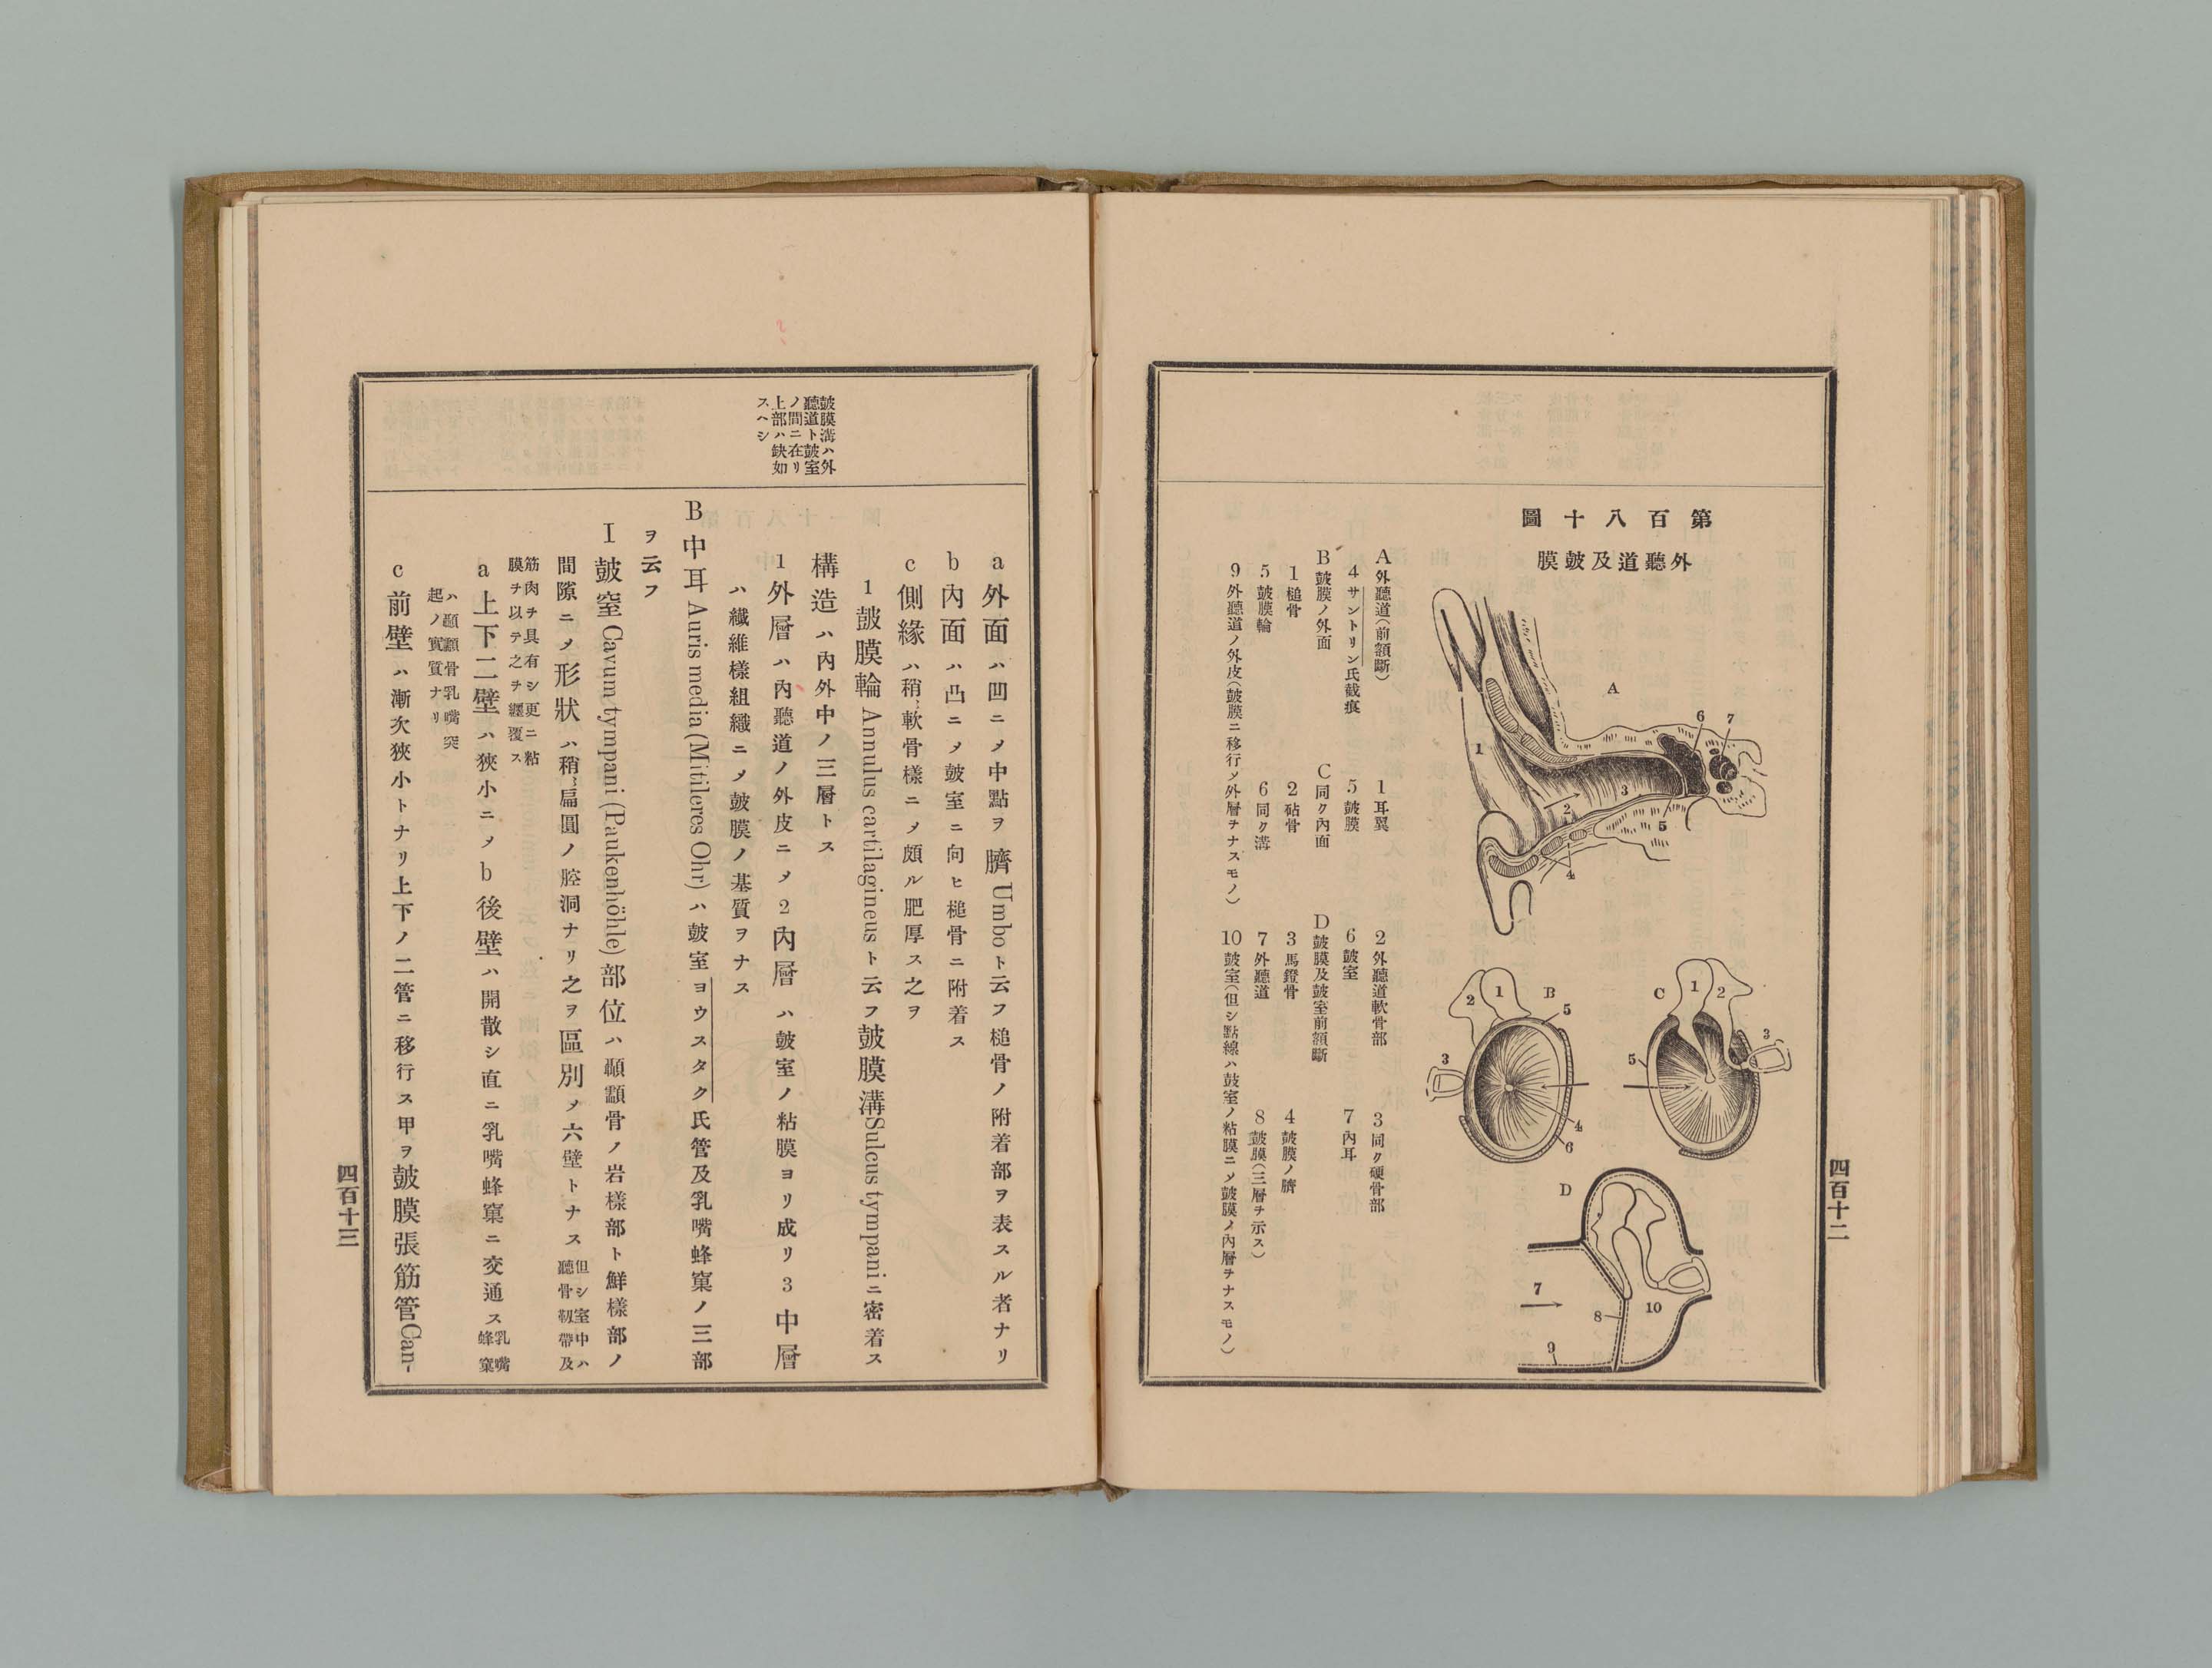 第百八十圖
外聽道及皷膜
A
1
2
3
4
5
6
7
B
1
2
3
4
5
6
C
1
2
3
5
D
7
8
9
10
A外聽道(前額斷) 1耳翼 2外聽道軟骨部 3同ク硬骨部
4サントリン氏截痕 5皷膜 6皷室 7內耳
B皷膜ノ外面 C同ク內面 D皷膜及皷室前額斷
1槌骨 2砧骨 3馬鐙骨 4皷膜ノ臍
5皷膜輪 6同ク溝 7外聽道 8皷膜(三層ヲ示ス)
9外聽道ノ外皮(皷膜ニ移行シ外層ヲナスモノ) 10皷室(但シ點線ハ皷室ノ粘膜ニメ皷膜ノ內層ヲナスモノ)
四百十二
皷膜溝ハ外
聽道ト皷室
ノ間ニ在リ
上部ハ缺如
スヘシ
a外面ハ凹ニメ中點ヲ臍Umboト云フ槌骨ノ附着部ヲ表スル者ナリ
b內面ハ凸ニメ皷室ニ向ヒ槌骨ニ附着ス
c側緣ハ稍軟骨樣ニメ頗ル肥厚ス之ヲ
1皷膜輪 Annulus cartilagineusト云フ皷膜溝Sulcus tympaniニ密着ス
構造ハ內外中ノ三層トス
1外層ハ內聽道ノ外皮ニメ2內層ハ皷室ノ粘膜ヨリ成リ3中層
ハ纖維樣組織ニメ皷膜ノ基質ヲナス
B中耳 Auris media (Mitileres Ohr)ハ皷室ヨウスタク氏管及乳嘴蜂窠ノ三部
ヲ云フ
I皷室Cavum tympani (Paukenhöhle)部位ハ顳顬骨ノ岩樣部ト鮮樣部ノ
間隙ニメ形狀ハ稍扁圓ノ腔洞ナリ之ヲ區別メ六壁トナス但シ室中ハ聽骨靱帶及
筋肉ヲ具有シ更ニ粘膜ヲ以テ之ヲ纒覆ス
a上下二壁ハ狹小ニメb後壁ハ開散シ直ニ乳嘴蜂窠ニ交通ス乳嘴蜂窠
ハ顳顬骨乳嘴突起ノ實質ナリ
c前壁ハ漸次狹小トナリ上下ノ二管ニ移行ス甲ヲ皷膜張筋管Can-
四百十三